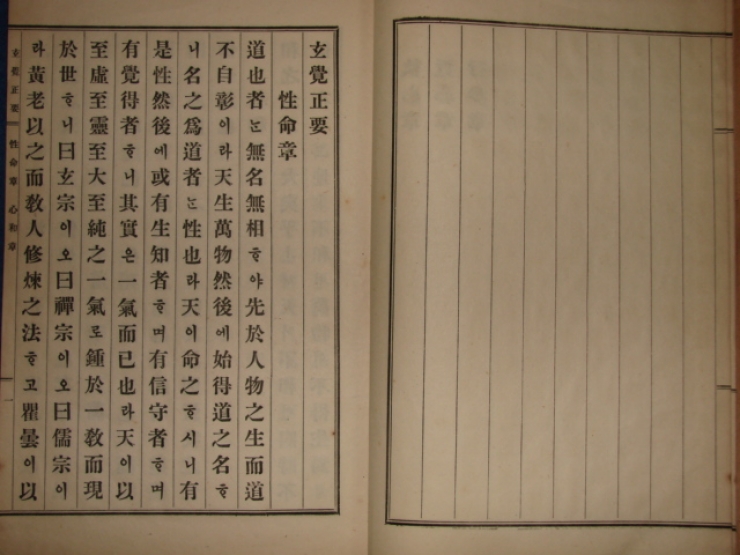 玄覺正要
性命章
道也者ᄂᆞᆫ無名無相ᄒᆞ야先於人物之生而道
不自彰이라天生萬物然後에始得道之名ᄒᆞ
니名之爲道者ᄂᆞᆫ性也라天이命之ᄒᆞ시니有
是性然後에或有生知者ᄒᆞ며有信守者ᄒᆞ며
有覺得者ᄒᆞ니其實은一氣而已也라天이以
至虛至靈至大至純之一氣로鍾於一敎而現
於世ᄒᆞ니曰玄宗이오曰禪宗이오曰儒宗이
라黃老以之而敎人修煉之法ᄒᆞ고瞿曇이以
玄覺正要 性命章 心和章